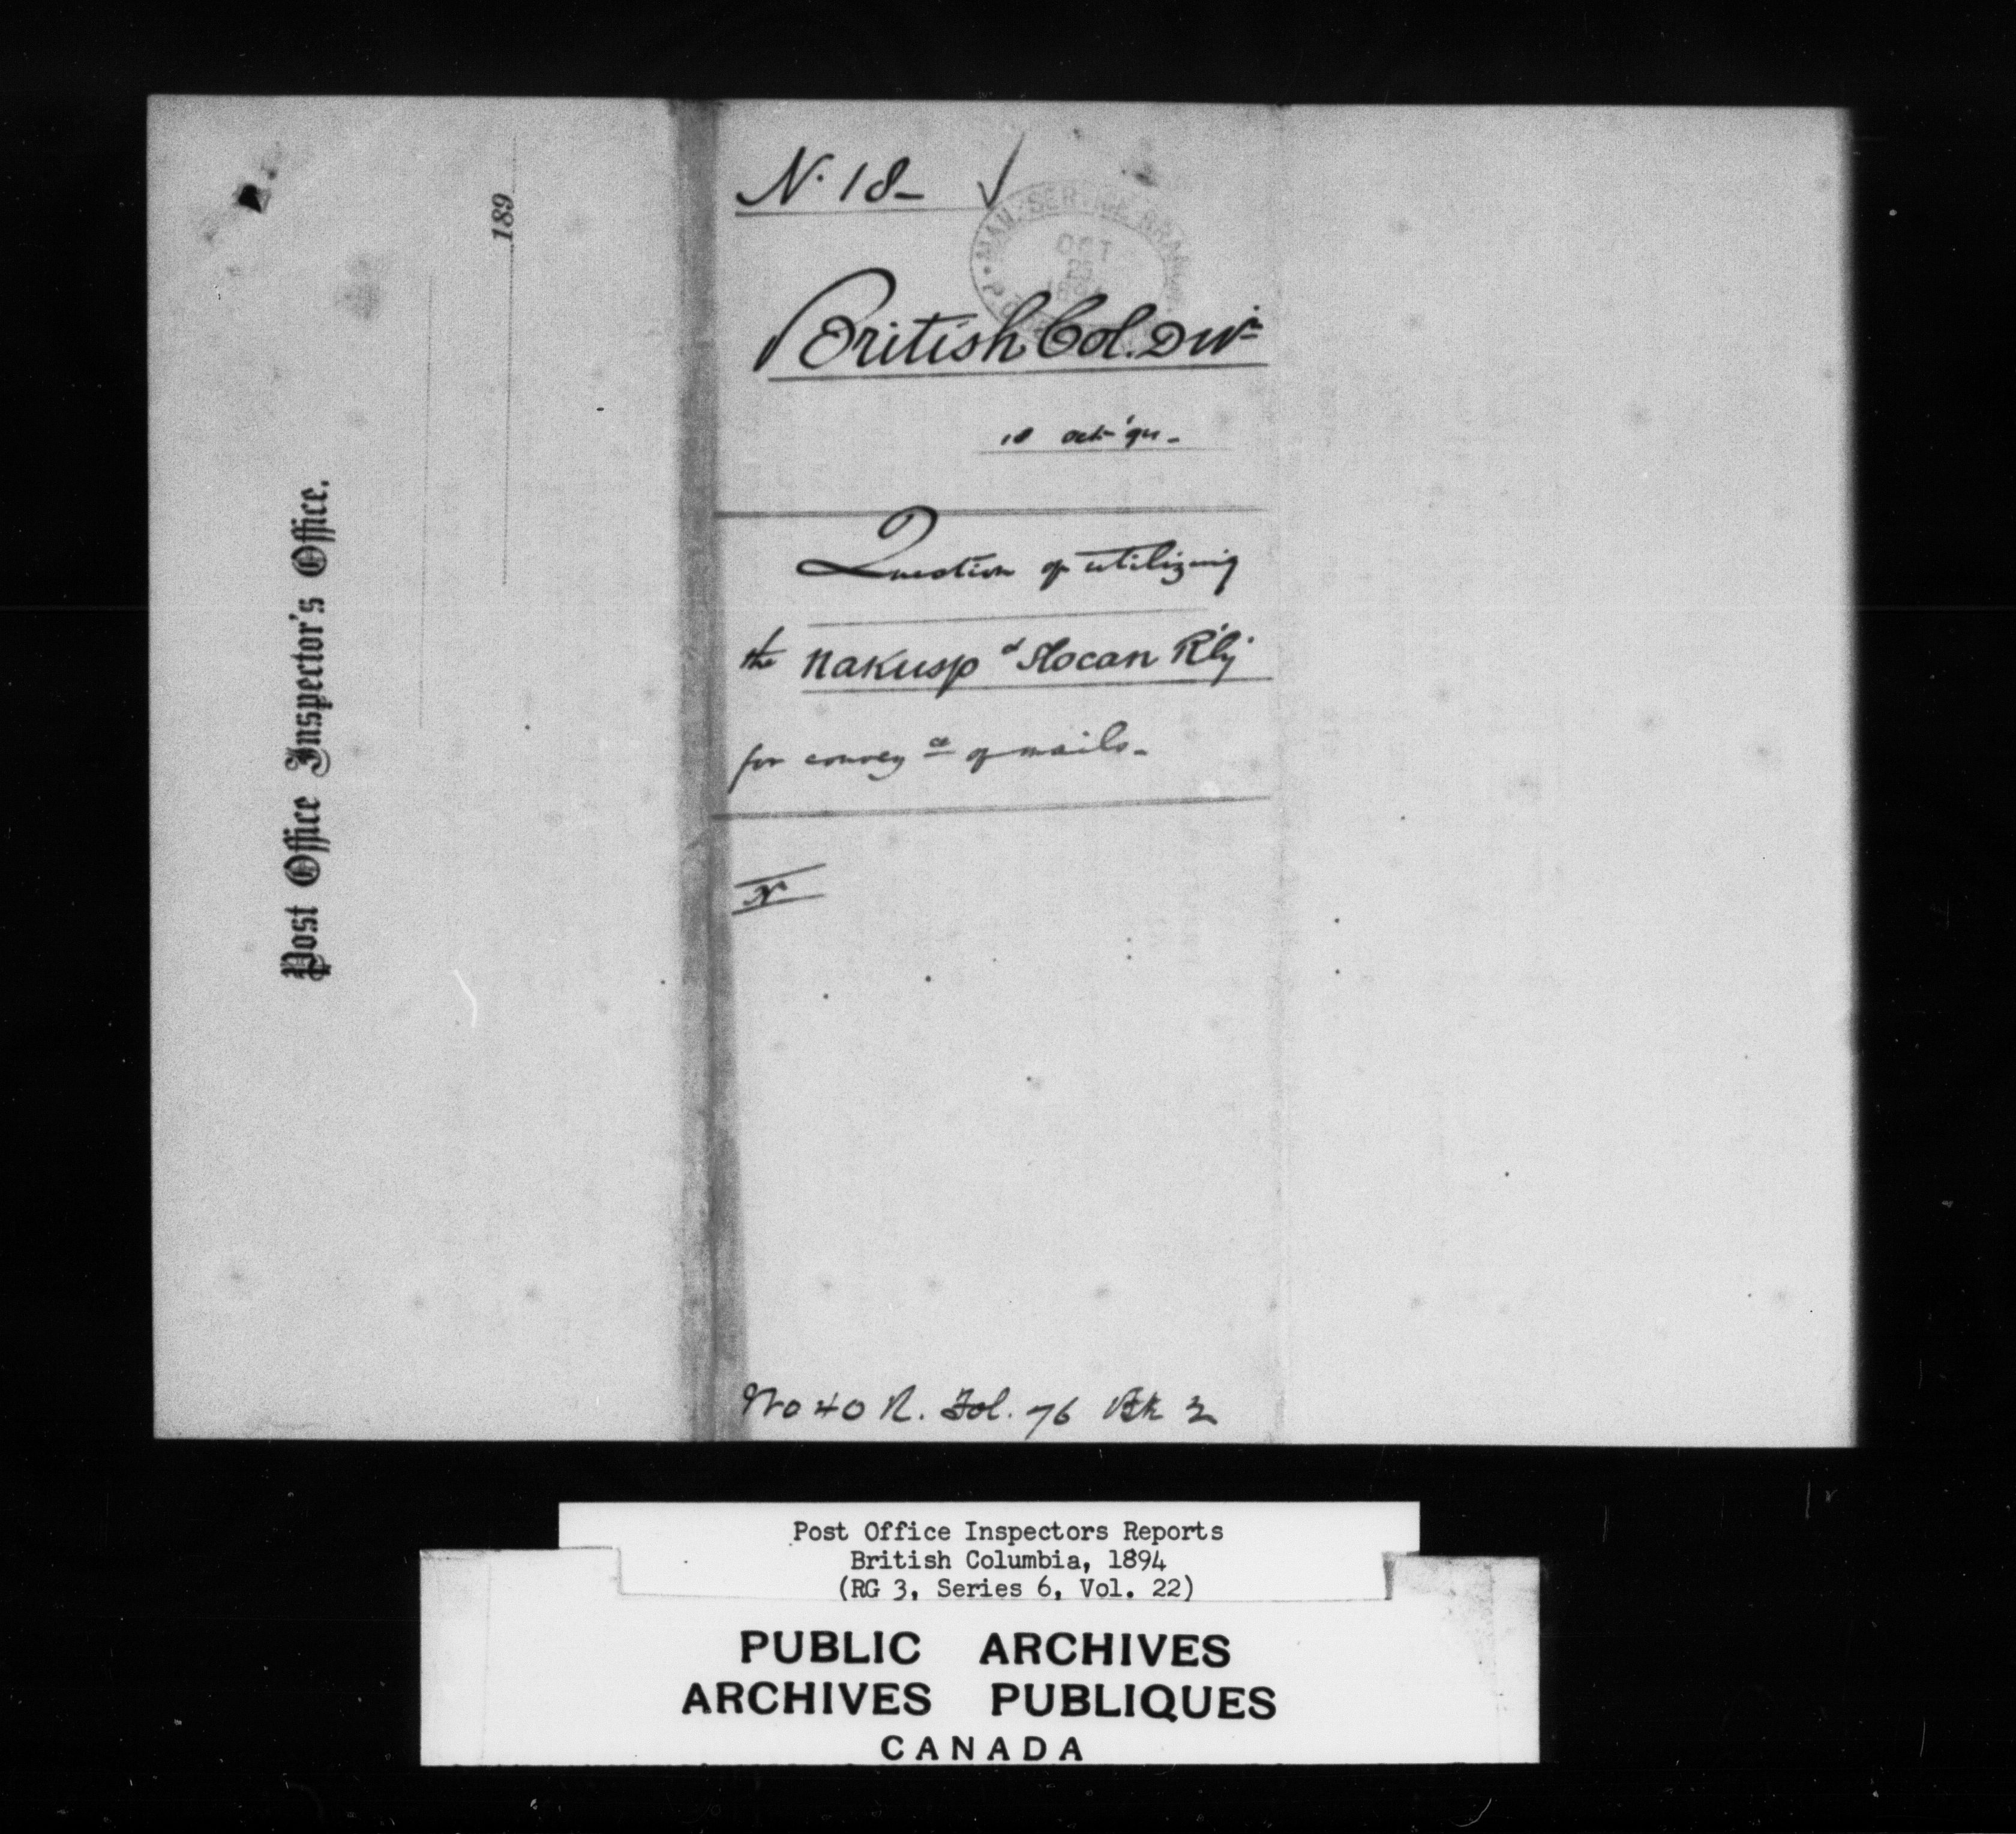 Post Office Inspector's Office.
189
N. 18 -
MAIL SERVICE BRANCH
OCT
British Col. Divn
18 Oct '94 -
Question of utilizing
the Nakusp & Slocan R'ly
for convey ce of mails -
N
No 40 N. Fol. 76 Bk 2
Post Office Inspectors Reports
British Columbia, 1894
(RG 3, Series 6, Vol. 22)
PUBLIC ARCHIVES
ARCHIVES PUBLIQUES
CANADA